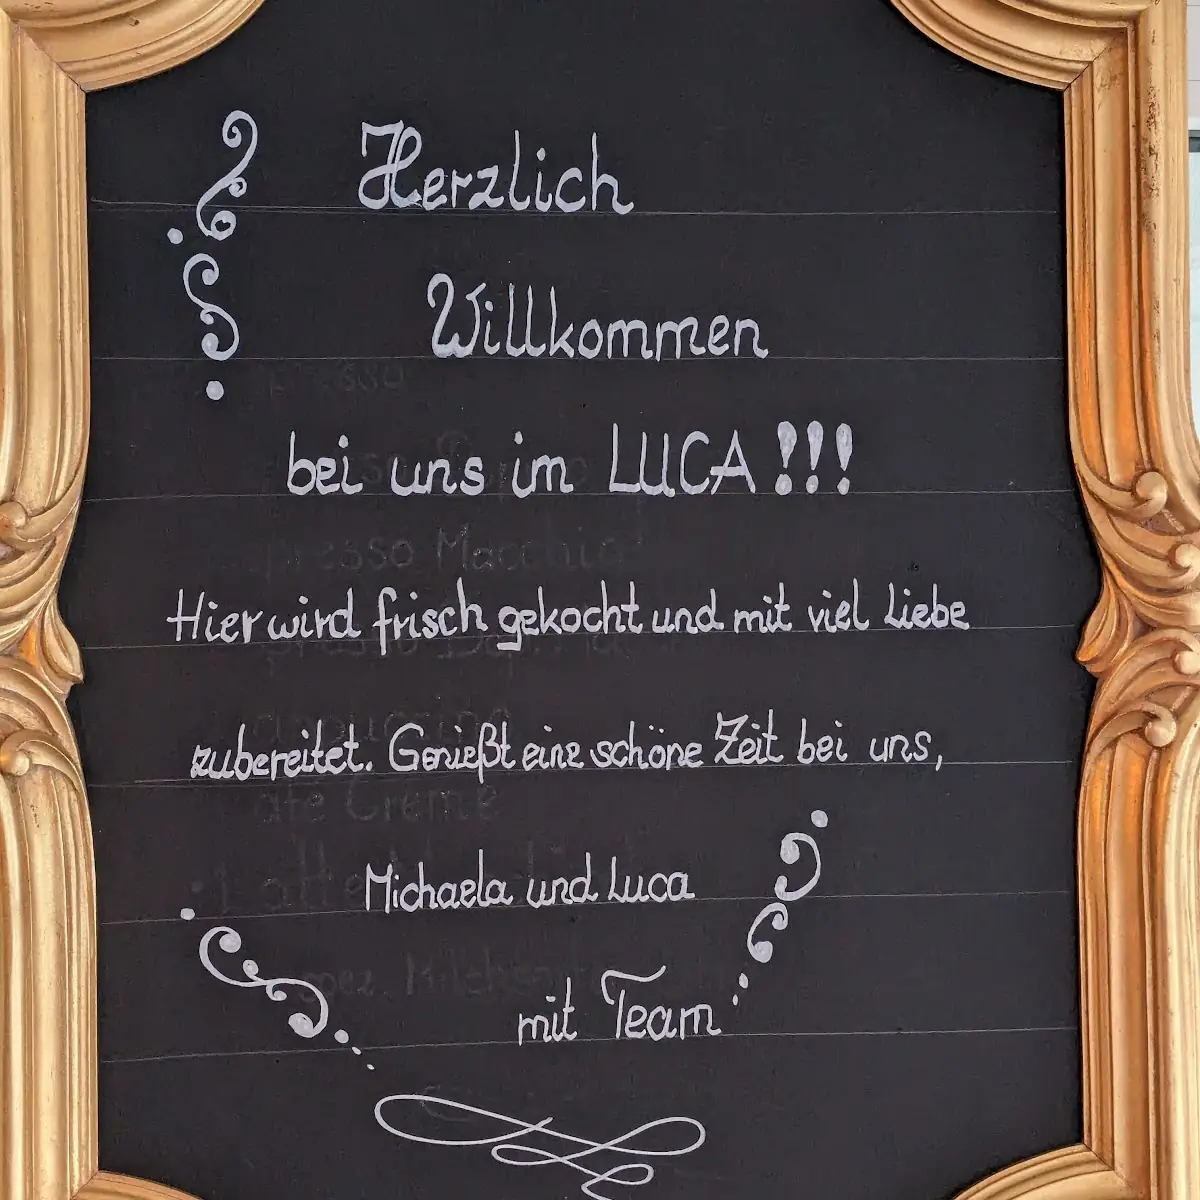 Herzlich
Willkommen
bei uns im LUCA!!!
presso Macchia
Hier wird frisch gekocht und mit viel Liebe
zubereitet. Genießt eine schöne Zeit bei uns,
Michaela und Luca
mit Team